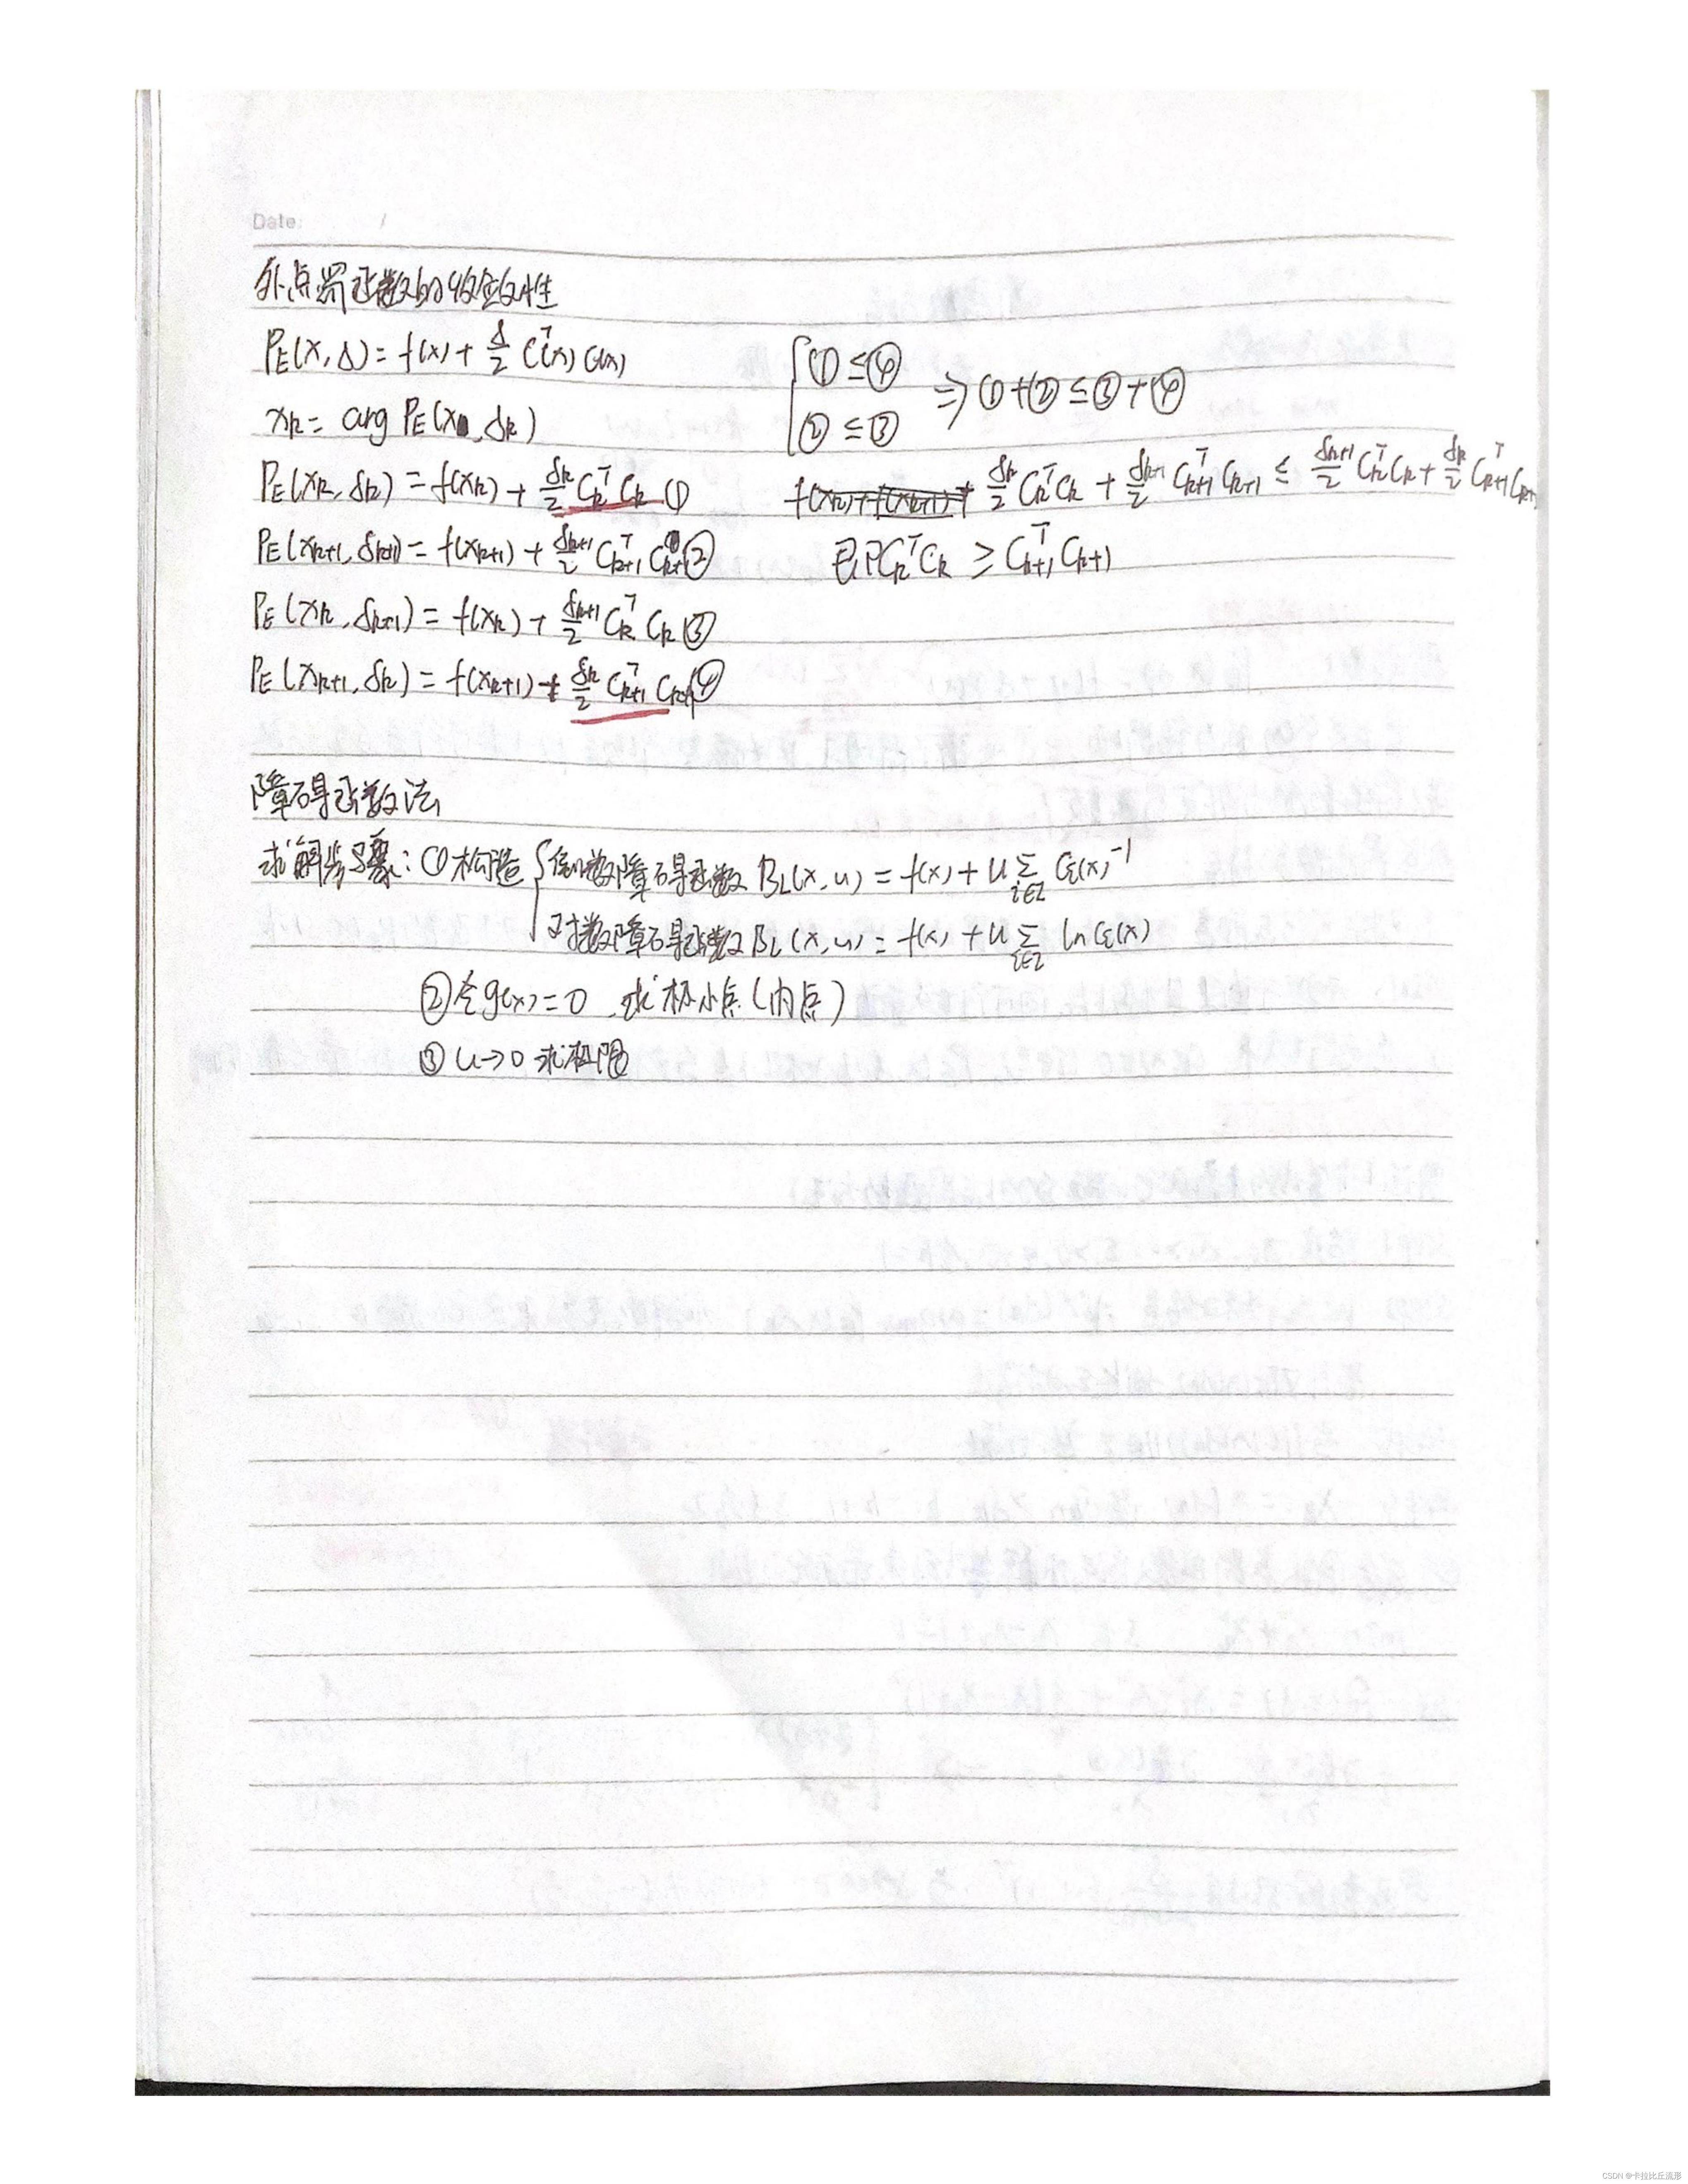 Date: /
外点罚函数的收敛性
P_E(x, δ) = f(x) + δ/2 C^T(x) C(x)
x_k = arg P_E(x, δ_k)
P_E(x_k, δ_k) = f(x_k) + δ_k/2 C_k^T C_k ①
P_E(x_{k+1}, δ_{k+1}) = f(x_{k+1}) + δ_{k+1}/2 C_{k+1}^T C_{k+1} ②
P_E(x_k, δ_{k+1}) = f(x_k) + δ_{k+1}/2 C_k^T C_k ③
P_E(x_{k+1}, δ_k) = f(x_{k+1}) + δ_k/2 C_{k+1}^T C_{k+1} ④
{ ① ≤ ④
② ≤ ③ ⇒ ① + ② ≤ ③ + ④
f(x_k) + f(x_{k+1}) + δ_k/2 C_k^T C_k + δ_{k+1}/2 C_{k+1}^T C_{k+1} ≤ δ_{k+1}/2 C_k^T C_k + δ_k/2 C_{k+1}^T C_{k+1}
即 C_k^T C_k ≥ C_{k+1}^T C_{k+1}
障碍函数法
求解步骤: ① 构造 { 倒数障碍函数 B_L(x, u) = f(x) + u Σ_{i∈I} C_i(x)^{-1}
对数障碍函数 B_L(x, u) = f(x) + u Σ_{i∈I} ln C_i(x)
② 令g(x) = 0 , 求极小点 (内点)
③ u→0 求极限
CSDN @卡拉比丘流形